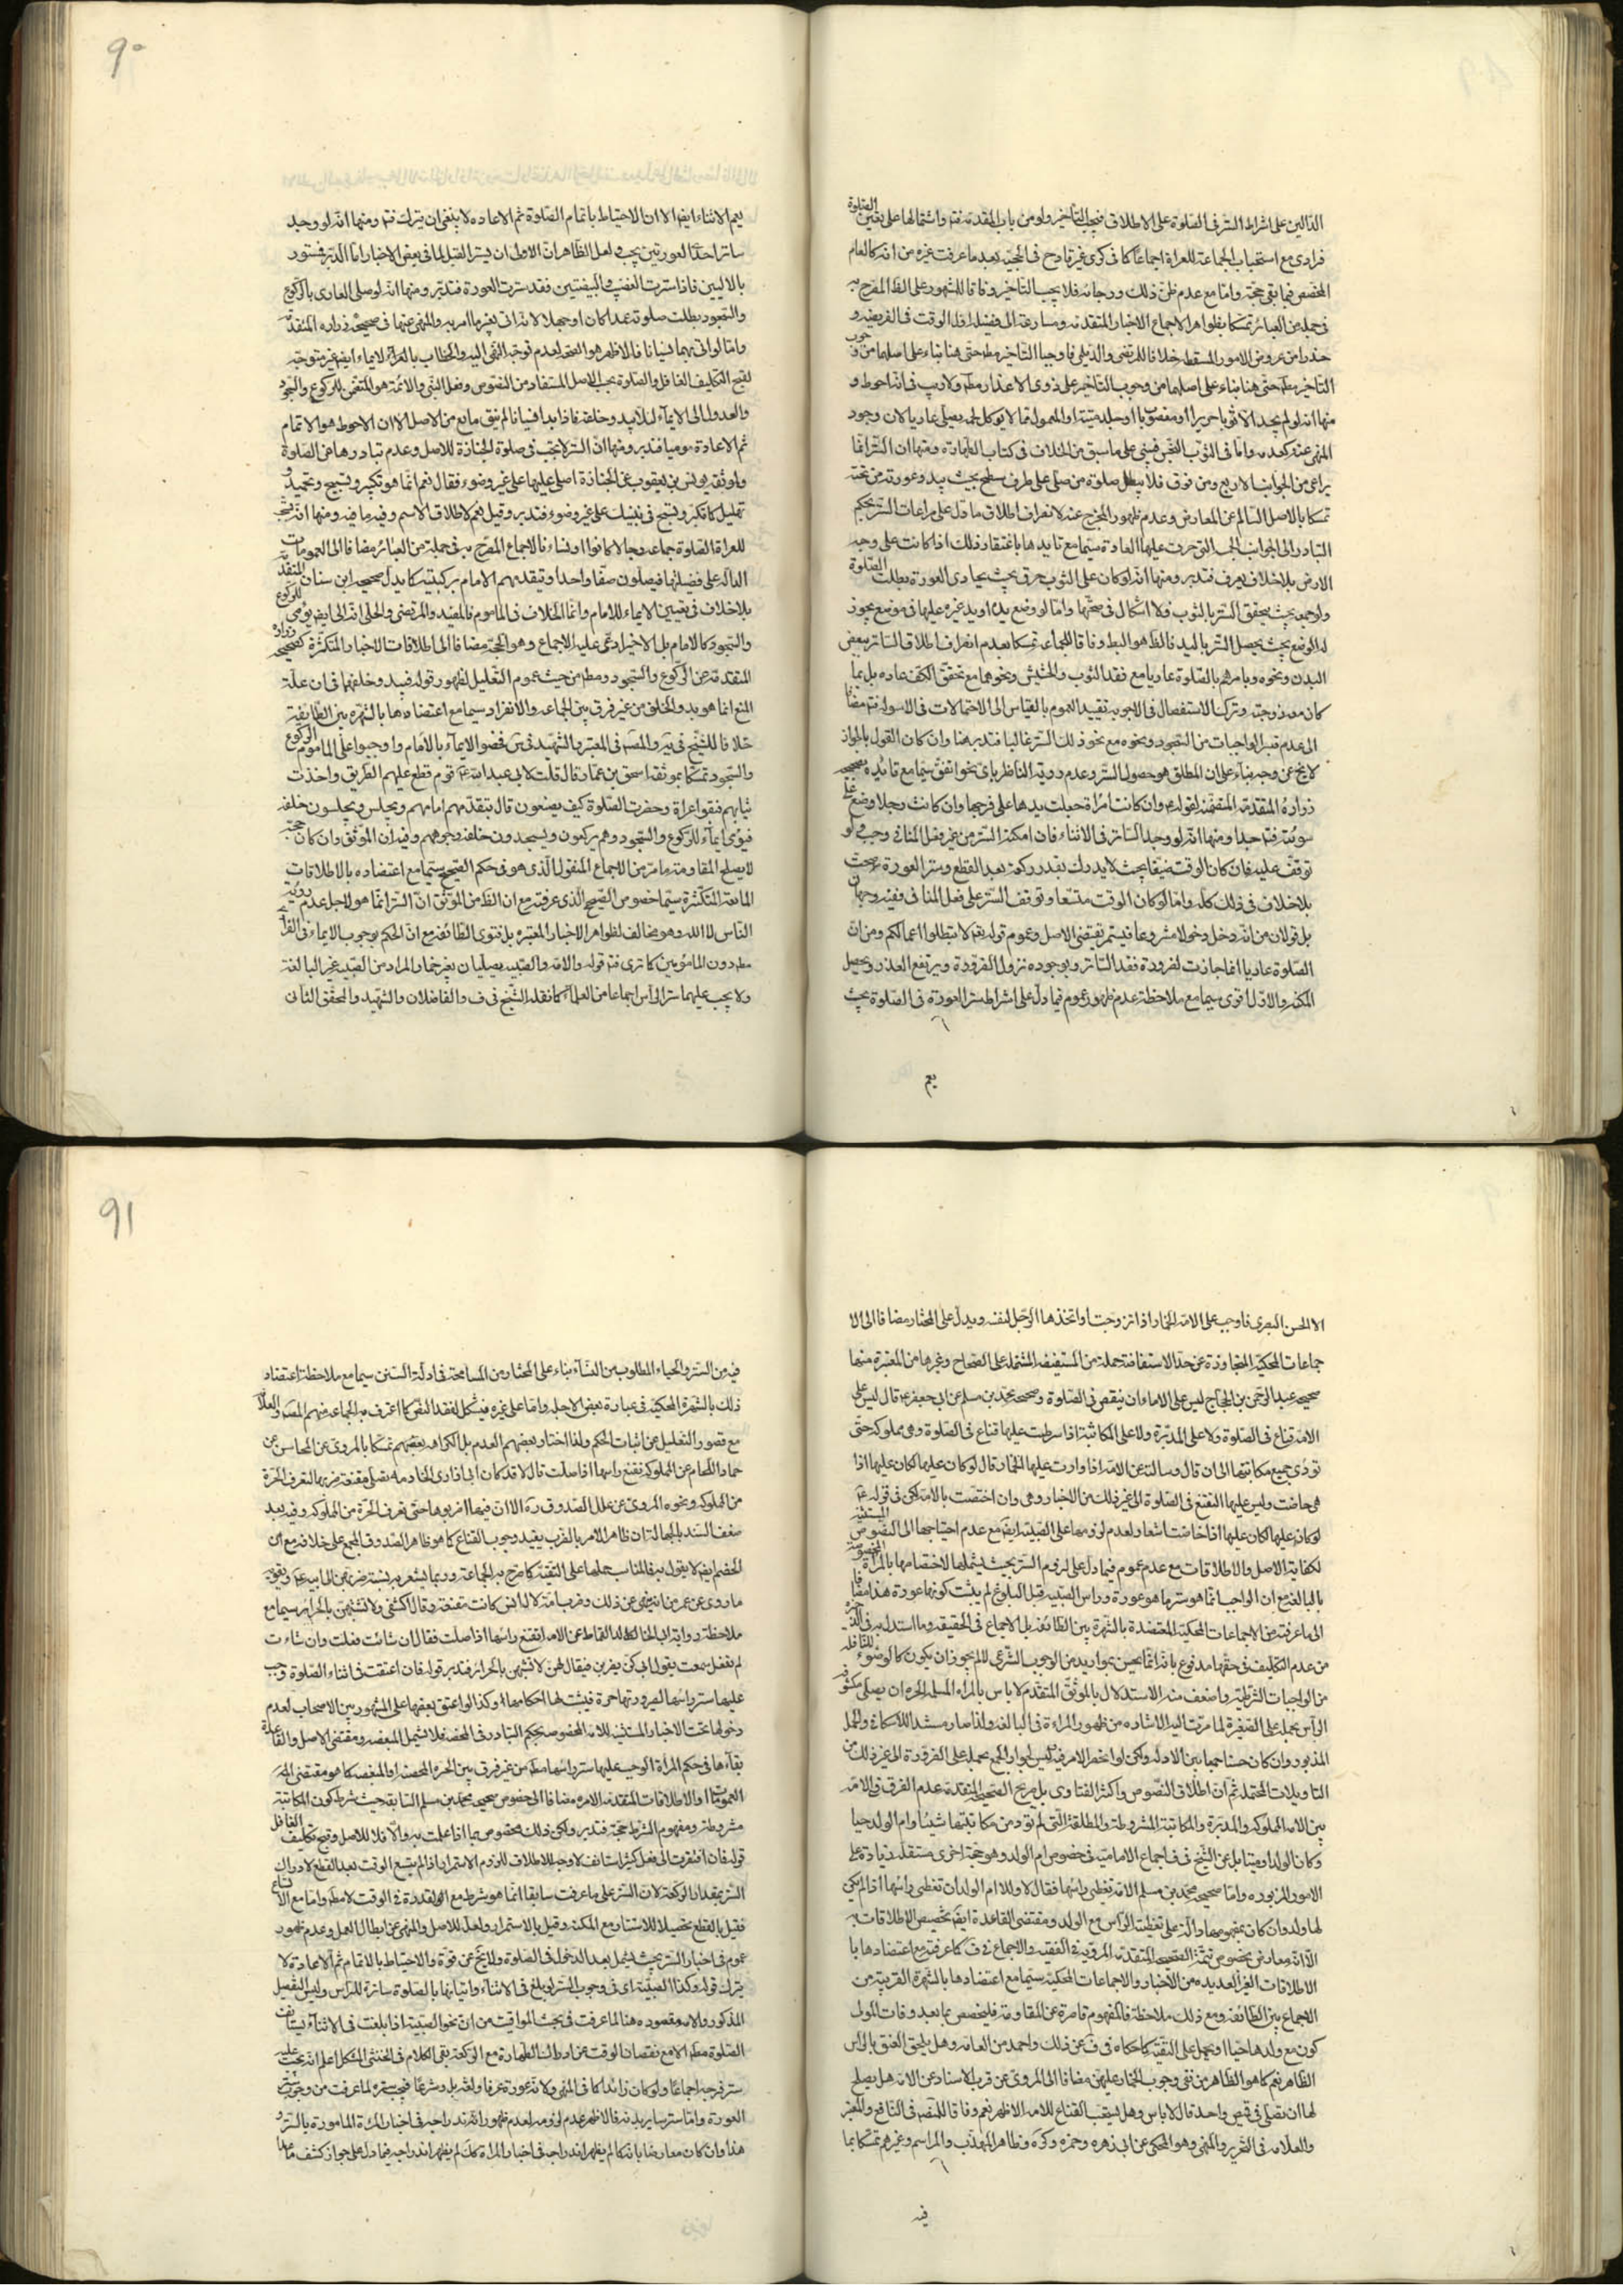 الدالين على اشراط الستر فى الصلوة على الاطلاق فيجب التأخير ولو من باب المقدمة فتم واشتمالها على يقين الصلوة
فرادى مع استحباب الجماعة للعراة اجماعا كما فى كرى غير قادح فى الحجية بعد ما عرفت غيره من انه كالعام
المخصص فيما بقى حجة واما مع عدم ظن ذلك ورجائه فلا يجب التاخير وفاقا للمشهور على الظ المصرح به
فى جملة من العبائر تمسكا بظواهر الاجماع الاخبار المتقدمة ومسارعة الى فضيلة اول الوقت فى الفريضه و
حذرا من عروض الامور المسقطة خلافا للمرتضى والديلمى فاوجبا التاخير مطم حتى هنا بناء على اصلهما من وجوب
التاخير مطم حتى هنا بناء على اصلهما من وجوب التاخير على ذوى الاعذار مطم ولا ريب فى انه احوط و
منها انه لو لم يجد الا ثوبا حريرا او مغصوبا او جلد ميتة او المعمول مما لا يوكل لحمه يصلى عاريا لان وجود
المنهى عنه كعدمه واما فى الثوب النجس فمبنى على ما سبق من الخلاف فى كتاب الطهارة ومنها ان الستر انما
يراعى من الجوانب الاربع ومن فوق فلا يبطل صلوة من صلى على طرف سطح بحيث يبدو عورته من تحته
تمسكا بالاصل السالم عن المعارض وعدم ظهور المخرج عنه لانصراف اطلاق ما دل على مراعات الستر بحكم
التبادر الى الجوانب التى جرت عليها العادة سيما مع تايدها باغتفار ذلك اذا كانت على وجه
الارض بلا خلاف يعرف فتدبر ومنها انه لو كان على الثوب خرق بحيث يحاذى العورة بطلت الصلوة
ولو جمعه بحيث يتحقق الستر بالثوب فلا اشكال فى صحتها واما لو وضع يده او يد غيره عليها فى موضع يجوز
له الوضع بحيث يحصل الستر باليد فالظ هو البط وفاقا للجماعة تمسكا بعدم انصراف اطلاق الساتر ببعض
البدن ونحوه وبامرهم بالصلوة عاريا مع فقد الثوب والحشيش ونحوهما مع تحقق الكف عاده بل بما
كان معه زوجته وترك الاستفصال فى الاجوبه تفيد العموم بالقياس الى الاحتمالات فى الاسولة فتم مضافا
الى عدم تيسر الواجبات من السجود ونحوه مع نحو ذلك الستر غالبا فتدبر هنا وان كان القول بالجواز
لا يخ عن وجه بناء على ان المطلق هو حصول الستر وعدم روية الناظر باى نحو اتفق سيما مع تايده بصحيحه
زرارة المتقدمة المتضمنة لقوله عم وان كانت امراة جعلت يدها على فرجها وان كانت رجلا وضع يده على
سوئته فتم جدا ومنها انه لو وجد الساتر فى الاثناء فان امكنه الستر من غير فعل المنافى وجب ولو
توقف عليه فان كان الوقت ضيقا بحيث لا يدرك بقدر ركعة بعد القطع وستر العورة صحت
بلا خلاف فى ذلك كله واما لو كان الوقت متسعا وتوقف الستر على فعل المنافى ففيه وجهان
بل قولان من انه دخل دخولا مشروعا فيستمر بمقتضى الاصل وعموم قوله تعم لا تبطلوا اعمالكم ومن ان
الصلوة عاريا انما جازت لضرورة فقد الساتر وبوجوده نزول الضرورة ويرتفع العذر ويحصل
المكنه والاول اقوى سيما مع ملاحظة عدم ظهور عموم فيما دل على اشراط ستر العورة فى الصلوة بحيث
يعم
90
يعم الاثناء ايضا الا ان الاحتياط باتمام الصلوة ثم الاعاده لا ينبغى ان يترك فتم ومنها انه لو وجد
ساتر احدى العورتين يجب ولعل الظاهر ان الاولى ان يستر القبل لما فى بعض الاخبار اما الدبر فمستور
بالاليين فاذا سترت القضيب والبيضتين فقد سترت العورة فتدبر ومنها انه لو صلى العارى بالركوع
والسجود بطلت صلوته عمدا كان او جهلا لانه اتى بغير ما امر به والمنهى عنهما فى صحيحة زراره المتقدمة
واما لو اتى بهما نسيانا فالاظهر هو الصحه لعدم توجه النهى اليه والخطاب بالعراة لايماء ايضا غير متوجه
لقبح التكليف الغافل والصلوة بحسب الاصل المستفاد من النصوص وفعل النبى والائمة هو المتضمن للركوع والسجود
والعدول الى الايماء لئلا يبدو خلفه فاذا بدا نسيانا لم يبق مانع من الاصل الا ان الاحوط هو الاتمام
ثم الاعادة موميا فتدبر ومنها ان الستر لا يجب فى صلوة الجنازة للاصل وعدم تبادرها من الصلوة
ولموثقه يونس بن يعقوب عن الجنازة اصلى عليها على غير وضوء فقال نعم انما هو تكبير وتسبيح وتحميد و
تهليل كما تكبر وتسبح فى بيتك على غير وضوء فتدبر وقيل نعم لاطلاق الاسم وفيه ما فيه ومنها انه يستحب
للعراة الصلوة جماعة رجالا كانوا او نساء فالاجماع المصرح به فى جملة من العبائر مضافا الى العمومات
الدالة على فضيلتها فيصلون صفا واحدا ويتقدمهم الامام بركبتيه كما يدل صحيحه ابن سنان المتقدمة
بلا خلاف فى تعيين الايماء للامام وانما الخلاف فى الماموم فالمفيد والمرتضى والحلى انه الى ايضا يومى للركوع
والسجود كالامام بل الاخير ادعى عليه الاجماع وهو الحجة مضافا الى اطلاقات الاخبار المتكثرة كصحيحه زراره
المتقدمة عن الركوع والسجود ومطم من حيث عموم التعليل لظهور قوله فيبدو خلفهما فى ان علة
المنع انما هو بدو الخلف من غير فرق بين الجماعه والانفراد سيما مع اعتضادها بالشهره بين الطايفة
خلافا للشيخ فى ير والمصم فى المعتبر والشهيد فى س فخصوا الايماء بالامام واوجبوا على الماموم الركوع
والسجود تمسكا بموثقة اسحق بن عمار قال قلت لابى عبد الله عم قوم قطع عليهم الطريق واخذت
ثيابهم فبقوا عراة وحضرت الصلوة كيف يصنعون قال يتقدمهم امامهم ويجلس ويجلسون خلفه
فيومى ايماء للركوع والسجود وهم يركعون ويسجدون خلفه على وجوههم وفيه ان الموثق وان كان حجة
لا يصلح المقاومة ما مر من الاجماع المنقول الذى هو فى حكم الصحيح سيما مع اعتضاده بالاطلاقات
المانعة المتكثرة سيما خصوص الصحيح الذى عرفته مع ان الظ من الموثق ان الستر انما هو لاجل عدم روية
الناس لا الله وهو مخالف لظواهر الاخبار المعتبره بل فتوى الطائفه مع ان الحكم بوجوب الايماء فى القراء
مطم دون المامومين كما ترى فتم قوله والامة والصبيه يصليان بغير خمار المراد من الصبيه غير البالغة
ولا يجب عليهما ستر الراس اجماعا من العلماء كما نقله الشيخ فى ف والفاضلان والشهيد والمحقق الثانى
الا الحسن البصرى فاوجب على الامة الخمار اذا تزوجت او اتخذها الرجل لنفسه ويدل على المختار مضافا الى الا
جماعات المحكية المتجاوزة عن حد الاستفاضة جملة من المستفيضة المشتملة على الصحاح وغيرها من المعتبرة منها
صحيحه عبد الرحمن بن الحجاج ليس على الاماء ان يتقنعن فى الصلوة وصحيحه محمد بن مسلم عن ابى جعفر عم قال ليس على
الامة قناع فى الصلوة ولا على المدبرة ولا على المكاتبة اذا شرطت عليها قناع فى الصلوة وهى مملوكه حتى
تودى جميع مكاتبتها الى ان قال وسالته عن الامة اذا ولدت عليها الخمار قال لو كان عليها لكان عليها اذا
هى حاضت وليس عليها التقنع فى الصلوة الى غير ذلك من الاخبار وهى وان اختصت بالامة لكن فى قوله عم
لو كان عليها لكان عليها اذا حاضت اشعار لعدم لزومها على الصبية ايضا مع عدم احتياجها الى النصوص المستفيضه
لكفاية الاصل والاطلاقات مع عدم عموم فيما دل على لزوم الستر بحيث يشملها لاختصاصها بالمراة المخصوصة
بالبالغه مع ان الواجب انما هو سترها هو عورة وراس الصبيه قبل البلوغ لم يثبت كونها عورة هذا مضافا
الى ما عرفته من الاجماعات المحكية المعتضدة بالشهرة بين الطائفه بل الاجماع فى الحقيقه وما استدل به فى الذخيره
من عدم التكليف فى حقها مدفوع بانه انما يحسن لو اريد من الوجوب الشرعى للم يجوز ان يكون كالوضوء للنافله
من الواجبات الشرطية واضعف منه الاستدلال بالموثق المتقدم لا باس بالمراه المسلمه الحره ان يصلى مكشوفه
الراس بحمله على الصغيرة لما مرت اليه الاشاره من ظهور المراءة فى البالغه ولذا صار مستندا للاسكافى والحمل
المذبور وان كان حسنا جمعا بين الادله ولكن لو انحصر الامر فيه ليس لجواز الجمع بحمله على الضرورة الى غير ذلك من
التاويلات المحتمله ثم ان اطلاق النصوص واكثر الفتاوى بل صريح الصحيحه المتقدمة عدم الفرق فى الامة
بين الامه المملوكه والمدبرة والمكاتبة المشروطة والمطلقة التى لم تؤد من مكاتبتها شيئا وام الولد حيا
وكان الولد او ميتا بل عن الشيخ فى ف اجماع الامامية فى خصوص ام الولد وهو حجة اخرى مستقله زيادة على
الامور المزبوره واما صحيحه محمد بن مسلم الامة تغطى راسها فقال لا ولا ام الولد ان تغطى راسها اذا لم يكن
لها ولد وان كان بمفهومها دالة على تغطية الراس مع الولد ومقتضى القاعدة ايضا تخصيص الاطلاقات به
الا انه معارض بخصوص تتمة الصحيحه المتقدمة المروية فى الفقيه والاجماع فى ف كما عرفته مع اعتضادها با
الاطلاقات الغير العديده من الاخبار والاجماعات المحكية سيما مع اعتضادها بالشهرة القريبة من
الاجماع بين الطائفه ومع ذلك ملاحظة فالمفهوم قاصرة عن المقاومة فليخصص بما بعد وفات المولى
كون مع ولدها حيا او يحمل على التقية كما حكاه فى ف عن ذلك واحمد من العامه وهل يلحق العنق بالراس
الظاهر نعم كما هو الظاهر من نفى وجوب الخمار عليهن مضافا الى المروى عن قرب الاسناد عن الامة هل يصلح
لها ان تصلى فى قميص واحد قال لا باس وهل يستحب القناع للامه الاظهر نعم وفاقا للمصم فى النافع والمعتبر
والعلامه فى التحرير والمنتهى وهو المحكى عن ابى زهره وحمزه وكره وظاهر المهذب والمراسم وغيرهم تمسكا بما
فيه
91
فيه من الستر والحياء المطلوبين من النساء بناء على المختار من المسامحة فى ادلة السنن سيما مع ملاحظة اعتضاد
ذلك بالشهرة المحكية فى عبارة بعض الاجله واما على غيره فيشكل لفقد النص كما اعترف به الجماعه منهم المصم والعلامة
مع قصور التعليل عن اثبات الحكم ولذا اختار بعضهم العدم بل الكراهه بعضهم تمسكا بالمروى عن المحاسن عن
حماد اللحام عن المملوكه تقنع راسها اذا صلت قال لا قد كان ابى اذا راى الخادمه تصلى مقنعه ضربها لتعرف الحرة
من المملوكه ونحوه المروى عن علل الصدوق ره الا ان فيهما اضربوها حتى تعرف الحرة من المملوكه وفيه بعد
ضعف السند بالجهالة ان ظاهر الامر بالضرب يفيد وجوب القناع كما هو ظاهر الصدوق المجمع على خلافه مع ان
الخصم ايضا لا يقول به فالمناسب حملها على التقية كما صرح به الجماعة وربما يشعر به
ما روى عن عمر من انه نهى عن ذلك وضرب امة لال انس كانت مقنعة وقال اكشفى ولا تشبهى بالحرائر سيما مع
ملاحظة رواية ابى خالد القماط عن الامه اتقنع راسها اذا صلت فقال ان شائت فعلت وان شاءت
لم تفعل سمعت يقول ابى كن يضربن فيقال لهن لا تشبهن بالحرائر فتدبر قوله فان اعتقت فى اثناء الصلوة وجب
عليها ستر راسها لصيرورتها حرة فيثبت لها احكامها وكذا لو اعتق بعضها على المشهور بين الاصحاب لعدم
دخولها تحت الاخبار المستثنيه للامة المخصوصه بحكم التبادر فى المحضه فلا يشمل المبعضه ومقتضى الاصل والقاعدة
بقاءها فى حكم المراة الوجب عليها ستر راسها مطم من غير فرق بين الحره المحضه او المبعضه كما هو مقتضى
العمومات او الاطلاقات المتقدمه الامره مضافا الى خصوص صحيحه محمد بن مسلم السابقه حيث شرط كون المكاتبة
مشروطة ومفهوم الشرط حجة فتدبر ولكن ذلك مخصوص بما اذا علمت به والا فلا للاصل وقبح تكليف الغافل
قوله فان افتقرت الى فعل كثير استانف لا وجه للاطلاق للزوم الاستمرار اذا لم يتسع الوقت بعد القطع لادراك
الستر بمقدار الركعة لان الستر على ما عرفت سابقا انما هو شرط مع القدرة فى الوقت لا مطم واما مع الاتساع
فقيل بالقطع تحصيلا للاستتار مع المكنه وقيل بالاستمرار ولعله للاصل والنهى عن ابطال العمل وعدم ظهور
عموم فى اخبار الستر بحيث يشمل بعد الدخول فى الصلوة ولا يخ عن قوة والاحتياط بالاتمام ثم الاعادة لا
يترك قوله وكذا الصبية اى فى وجوب الستر لو بلغ فى الاثناء واتيانها بالصلوة ساترة للراس وليس التفصيل
المذكور والا مقصوده هنا لما عرفت فى بحث المواقيت من ان نحو الصبية اذا بلغت فى الاثناء يستانف
الصلوة مطم الا مع نقصان الوقت عن ادراك الطهارة مع الركعة بقى الكلام فى الخنثى المشكل اعلم انه يجب عليه
ستر فرجيه اجماعا ولو كان زائدا كما فى المنتهى ولانه عورة عرفا ولغة بل وشرعا فيجب ستره لما عرفت من وجوب ستر
العورة واما ستر ساير بدنه فالاظهر عدم لزومه لعدم ظهور اندراجه فى اخبار المرئة المامورة بالستر و
هذا وان كان معارضا بانه كما لم يظهر اندراجه فى اخبار المراة كك لم يظهر اندراجه فيما دل على جواز كشف ما عدا